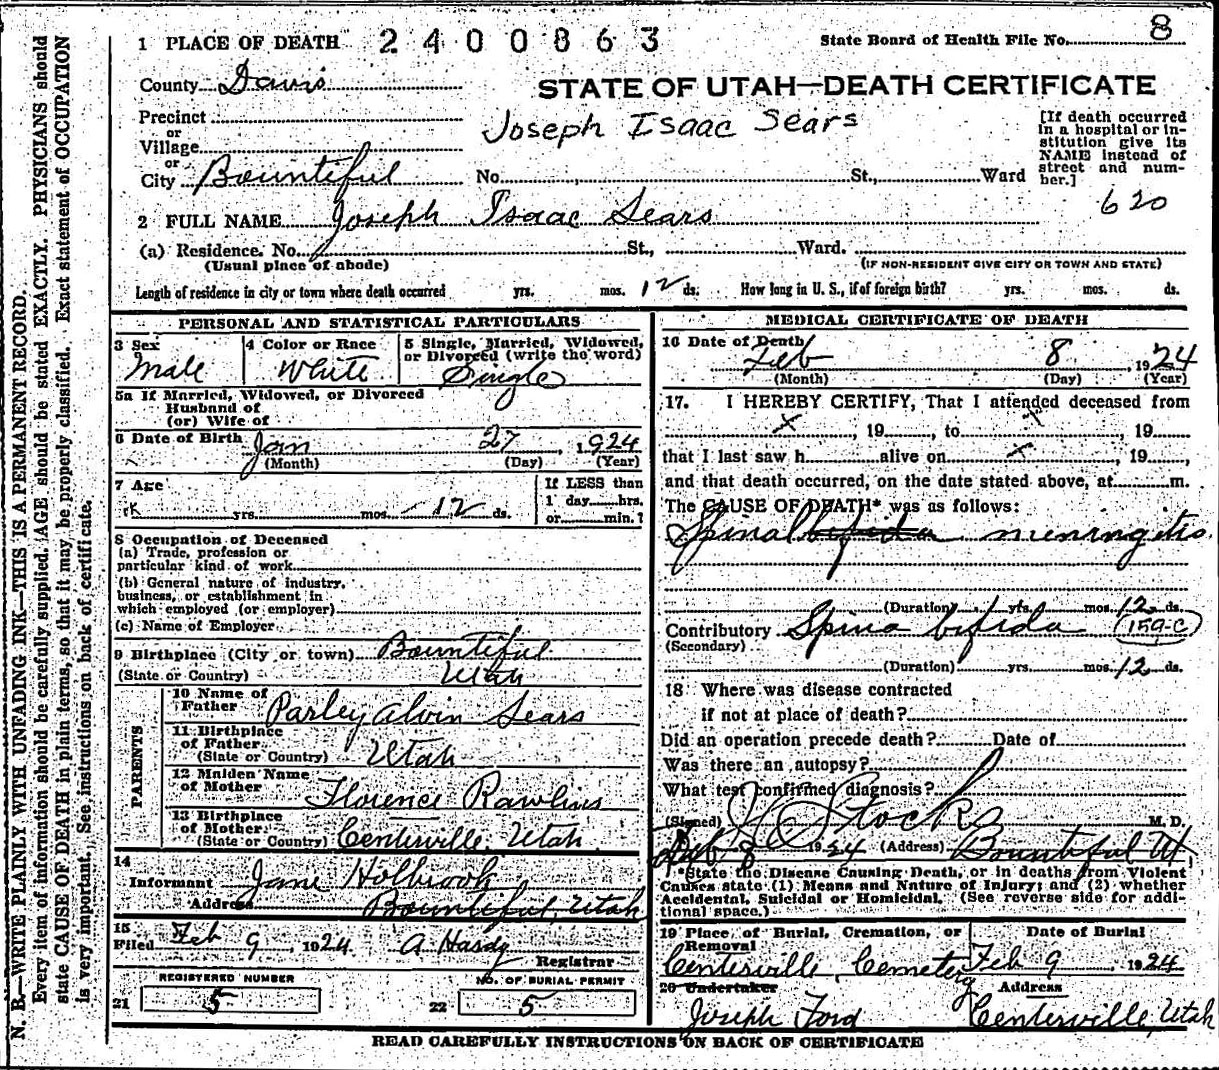 1 PLACE OF DEATH 2400863 State Board of Health File No. 8
County Davis STATE OF UTAH—DEATH CERTIFICATE
Precinct Joseph Isaac Sears
or
Village
or
City Bountiful No. St., Ward
[If death occurred
in a hospital or in-
stitution give its
NAME instead of
street and num-
ber.]
620
2 FULL NAME Joseph Isaac Sears
(a) Residence. No. St., Ward.
(Usual place of abode) (IF NON-RESIDENT GIVE CITY OR TOWN AND STATE)
Length of residence in city or town where death occurred yrs. mos. 12 ds. How long in U. S., if of foreign birth? yrs. mos. ds.
PERSONAL AND STATISTICAL PARTICULARS
3 Sex 4 Color or Race 5 Single, Married, Widowed,
or Divorced (write the word)
Male White Single
5a If Married, Widowed, or Divorced
Husband of
(or) Wife of
6 Date of Birth Jan 27, 1924
(Month) (Day) (Year)
7 Age If LESS than
1 day hrs.
yrs. mos. 12 ds. or min.?
8 Occupation of Deceased
(a) Trade, profession or
particular kind of work
(b) General nature of industry,
business, or establishment in
which employed (or employer)
(c) Name of Employer
9 Birthplace (City or town) Bountiful
(State or Country) Utah
PARENTS
10 Name of
Father Parley Alvin Sears
11 Birthplace
of Father
(State or Country) Utah
12 Maiden Name
of Mother Florence Rawlins
13 Birthplace
of Mother
(State or Country) Centerville, Utah
14
Informant Jane Holbrook
Address Bountiful, Utah
15
Filed Feb 9, 1924 A Hardy
Registrar
REGISTERED NUMBER NO. OF BURIAL PERMIT
21 5 22 5
MEDICAL CERTIFICATE OF DEATH
16 Date of Death
Feb 8 1924
(Month) (Day) (Year)
17. I HEREBY CERTIFY, That I attended deceased from
x, 19, to x, 19
that I last saw h alive on x, 19,
and that death occurred, on the date stated above, at m.
The CAUSE OF DEATH* was as follows:
Spinal bifida meningitis
(Duration) yrs. mos. 12 ds.
Contributory Spina bifida 159-C
(Secondary)
(Duration) yrs. mos. 12 ds.
18 Where was disease contracted
if not at place of death?
Did an operation precede death? Date of
Was there an autopsy?
What test confirmed diagnosis?
(Signed) Stocks M. D.
Feb 8 1924 (Address) Bountiful Ut
*State the Disease Causing Death, or in deaths from Violent
Causes state (1) Means and Nature of Injury; and (2) whether
Accidental, Suicidal or Homicidal. (See reverse side for addi-
tional space.)
19 Place of Burial, Cremation, or Date of Burial
Removal
Centerville Cemetery Feb 9 1924
20 Undertaker Address
Joseph Ford Centerville, Utah
READ CAREFULLY INSTRUCTIONS ON BACK OF CERTIFICATE
N. B.—WRITE PLAINLY WITH UNFADING INK—THIS IS A PERMANENT RECORD.
Every item of information should be carefully supplied. AGE should be stated EXACTLY. PHYSICIANS should
state CAUSE OF DEATH in plain terms, so that it may be properly classified. Exact statement of OCCUPATION
is very important. See instructions on back of certificate.